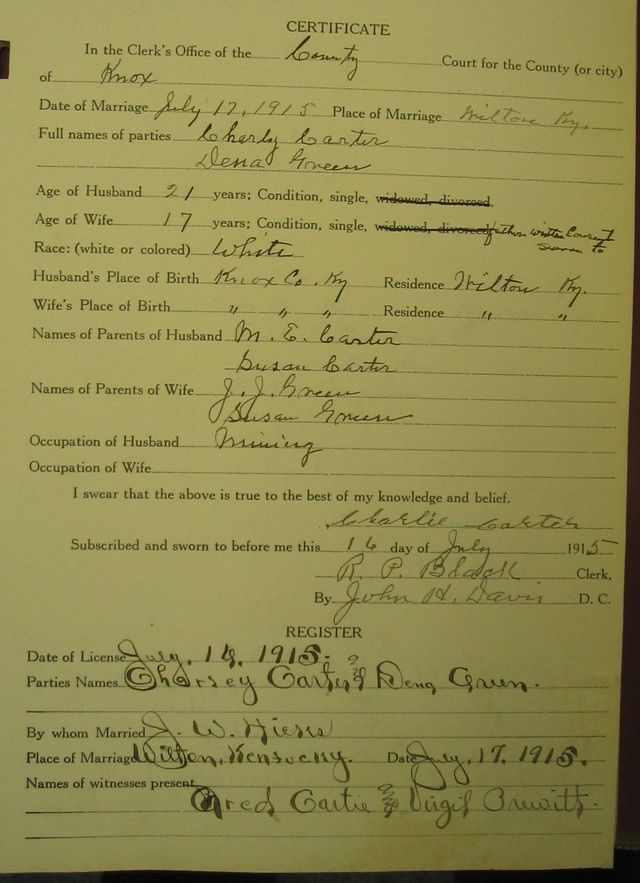 CERTIFICATE
In the Clerk's Office of the County Court for the County (or city)
of Knox
Date of Marriage July 17, 1915 Place of Marriage Wilton Ky.
Full names of parties Charly Carter
Dena Green
Age of Husband 21 years; Condition, single, widowed, divorced.
Age of Wife 17 years; Condition, single, widowed, divorced father written Consent
sworn to
Race: (white or colored) White
Husband's Place of Birth Knox Co. Ky Residence Wilton Ky.
Wife's Place of Birth " " " Residence " "
Names of Parents of Husband M. E. Carter
Susan Carter
Names of Parents of Wife J. J. Green
Susan Green
Occupation of Husband Mining
Occupation of Wife
I swear that the above is true to the best of my knowledge and belief.
Charlie Carter
Subscribed and sworn to before me this 16 day of July 1915
R. P. Black Clerk,
By John H. Davis D. C.
REGISTER
Date of License July, 1915.
Parties Names Charsey Carter & Dena Green.
By whom Married J. W.
Place of Marriage Wilton, Kentucky. Date July, 17, 1915.
Names of witnesses present
& Virgil Prewitt.